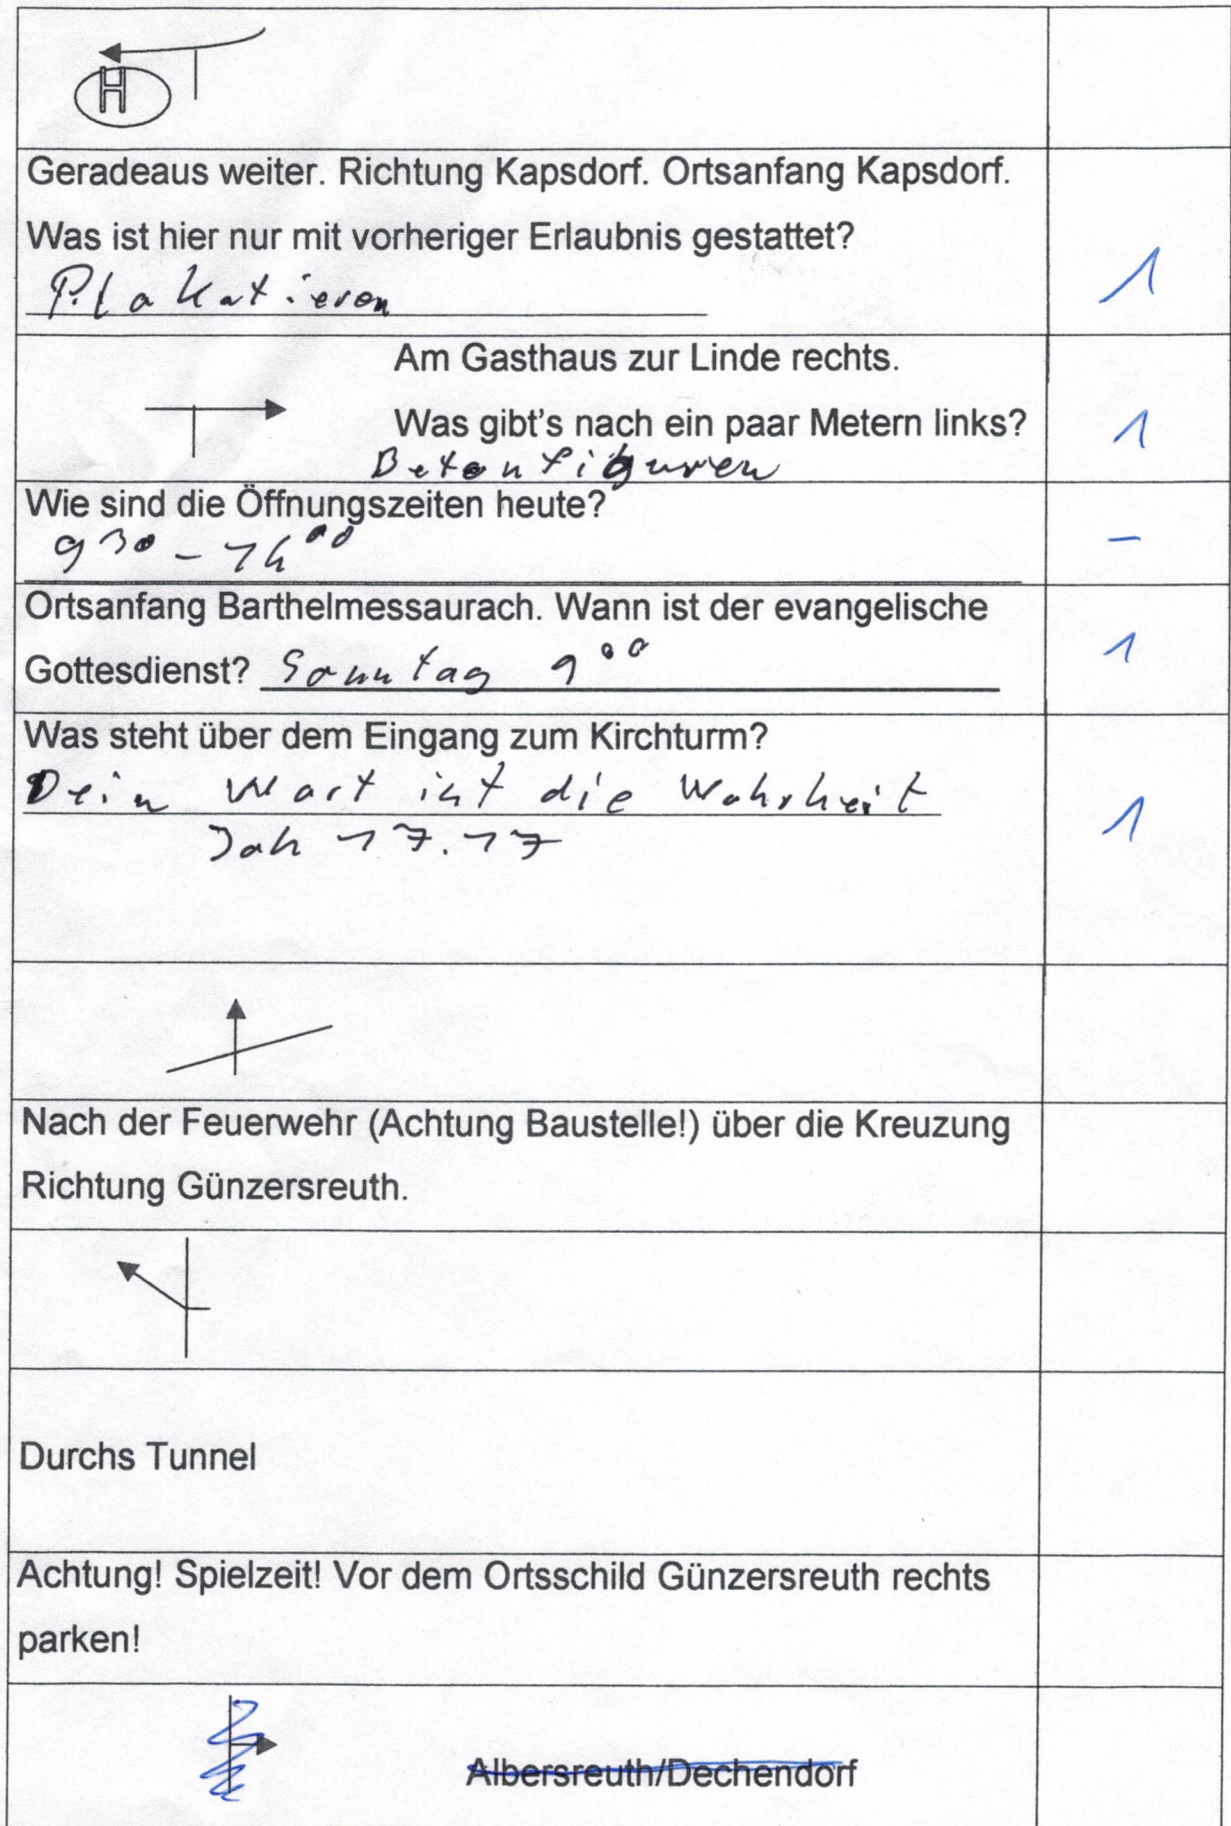 H
Geradeaus weiter. Richtung Kapsdorf. Ortsanfang Kapsdorf.
Was ist hier nur mit vorheriger Erlaubnis gestattet?
Plakatieren
1
Am Gasthaus zur Linde rechts.
Was gibt's nach ein paar Metern links?
1
Betonfiguren
Wie sind die Öffnungszeiten heute?
9 30 –
–
Ortsanfang Barthelmessaurach. Wann ist der evangelische
Gottesdienst? Sonntag 9 00
1
Was steht über dem Eingang zum Kirchturm?
Dein Wort ist die Wahrheit
Joh 17.17
1
Nach der Feuerwehr (Achtung Baustelle!) über die Kreuzung
Richtung Günzersreuth.
Durchs Tunnel
Achtung! Spielzeit! Vor dem Ortsschild Günzersreuth rechts
parken!
Albersreuth/Dechendorf